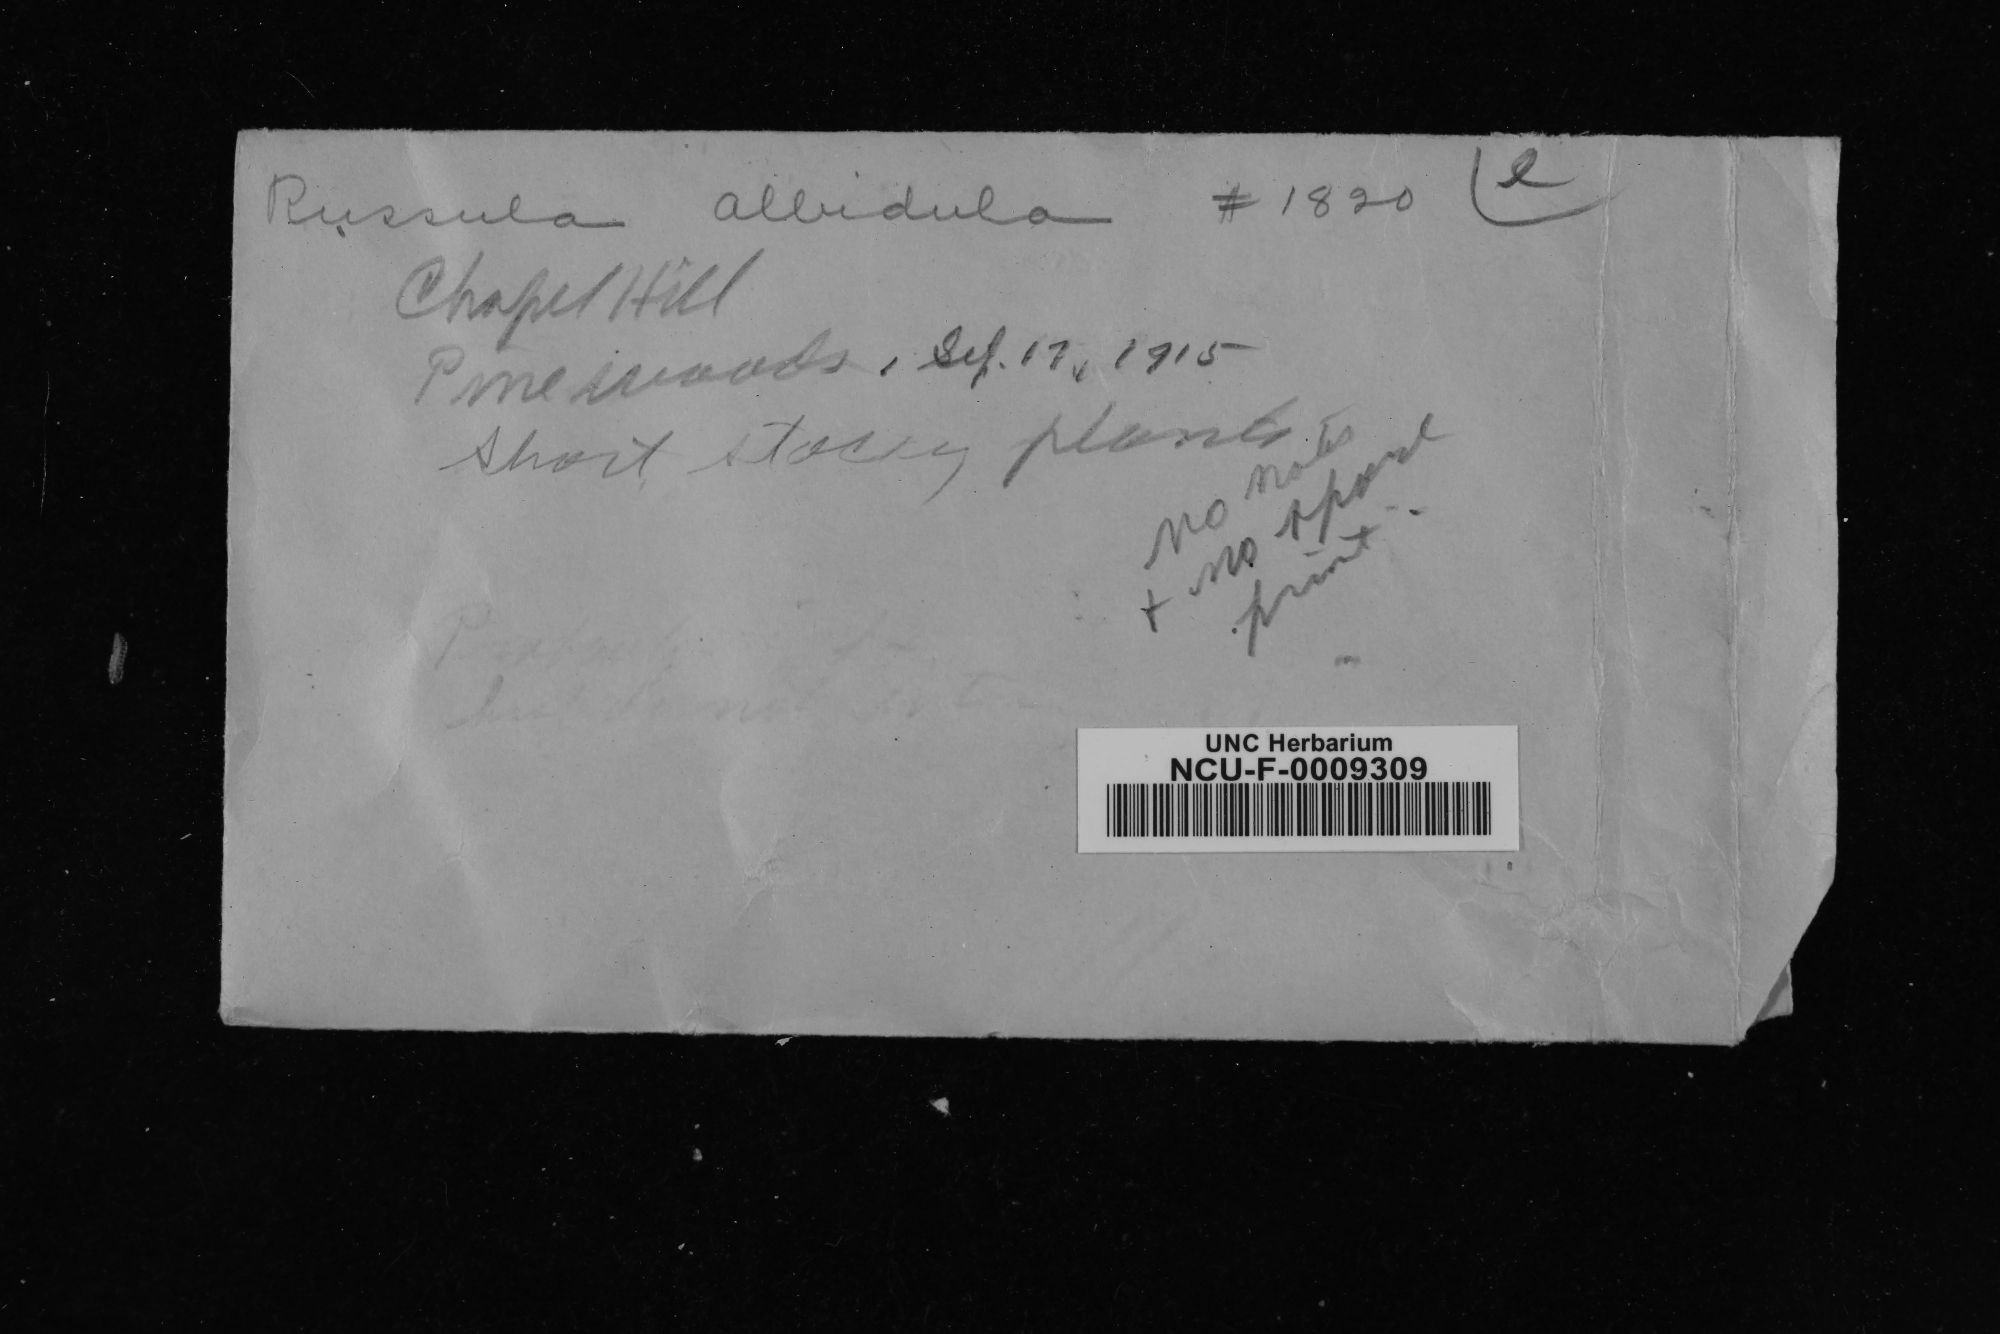 Russula albidula #1820 e
Chapel Hill
Pine woods, Sep. 17, 1915
Short, stocky plants
No notes
+ no spore
print
UNC Herbarium
NCU-F-0009309